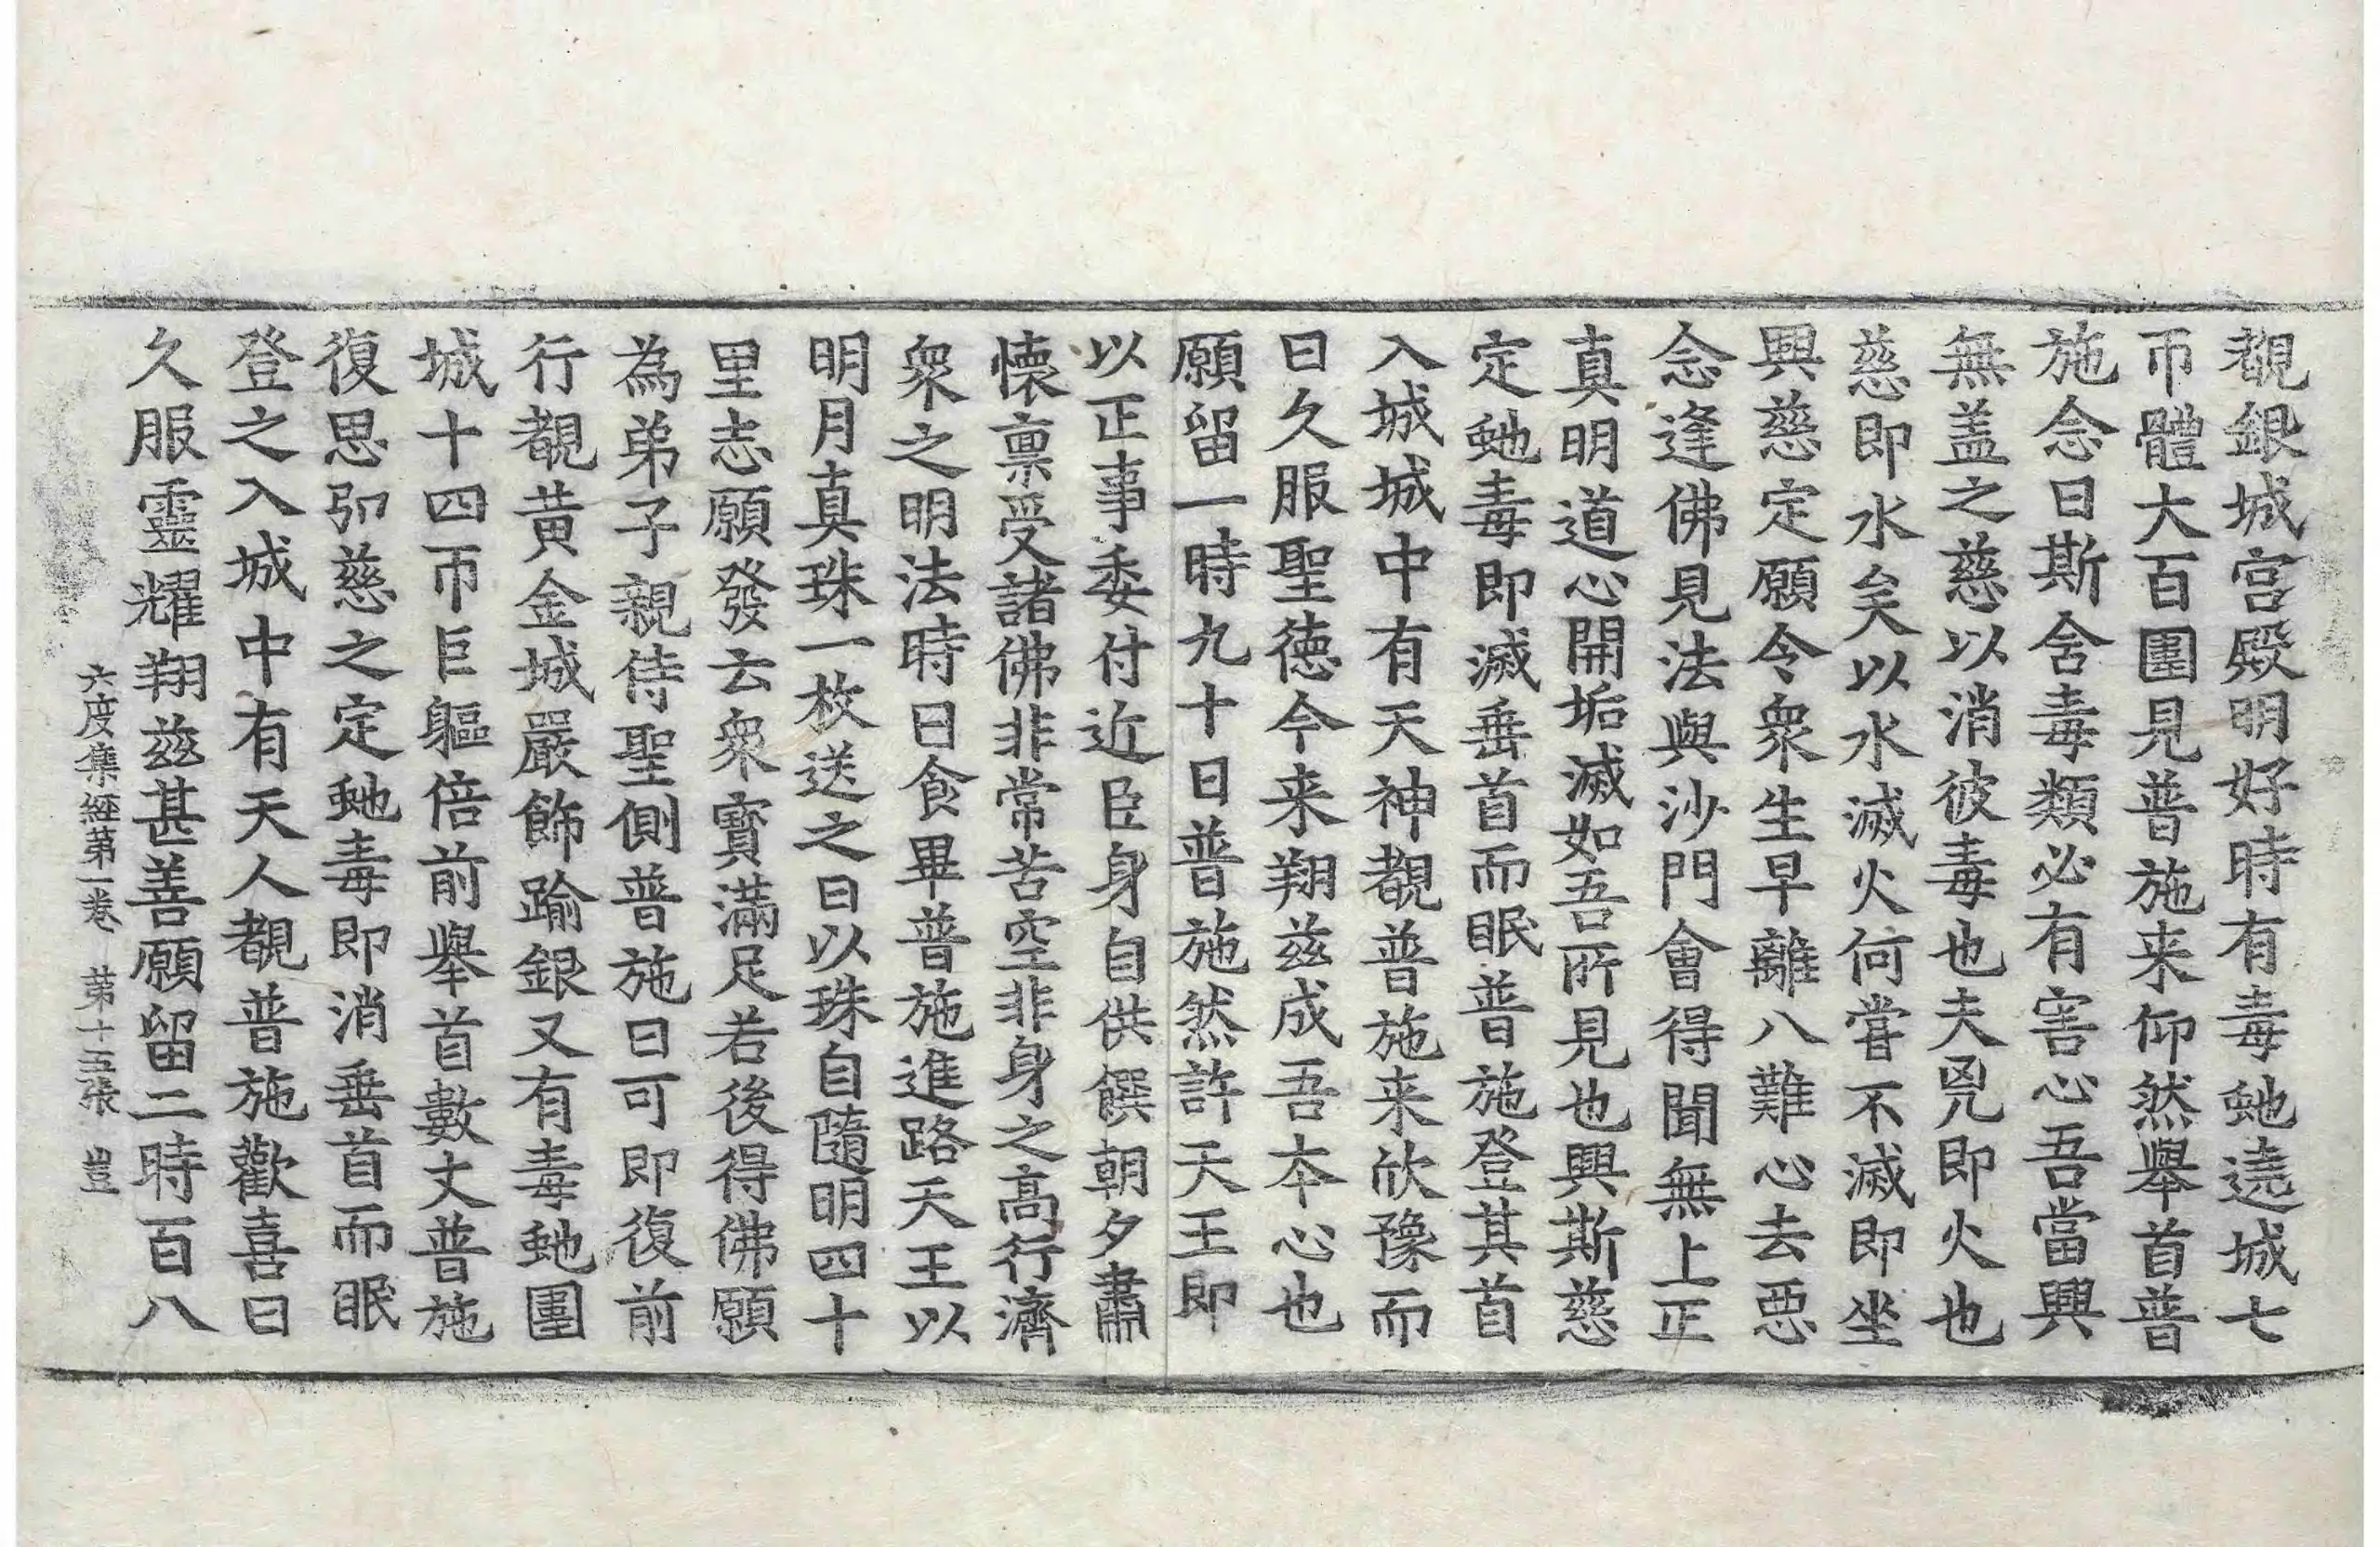 覩銀城宮殿明好時有毒虵遶城七
帀體大百圍見普施来仰然舉首普
施念曰斯含毒類必有害心吾當興
無盖之慈以消彼毒也夫兇即火也
慈即水矣以水滅火何嘗不滅即坐
興慈定願令衆生早離八難心去惡
念逢佛見法與沙門會得聞無上正
真明道心開垢滅如吾所見也興斯慈
定虵毒即滅垂首而眠普施登其首
入城城中有天神覩普施来欣豫而
曰久服聖德今来翔兹成吾本心也
願留一時九十日普施然許天王即
以正事委付近臣身自供饌朝夕肅
懷稟受諸佛非常苦空非身之高行濟
衆之明法時日食畢普施進路天王以
明月真珠一枚送之曰以珠自隨明四十
里志願發云衆寶滿足若後得佛願
為弟子親侍聖側普施曰可即復前
行覩黃金城嚴飾踰銀又有毒虵圍
城十四帀巨軀倍前舉首數丈普施
復思弘慈之定虵毒即消垂首而眠
登之入城中有天人覩普施歡喜曰
久服靈耀翔兹甚善願留二時百八
六度集經第一卷 第十五張 豈